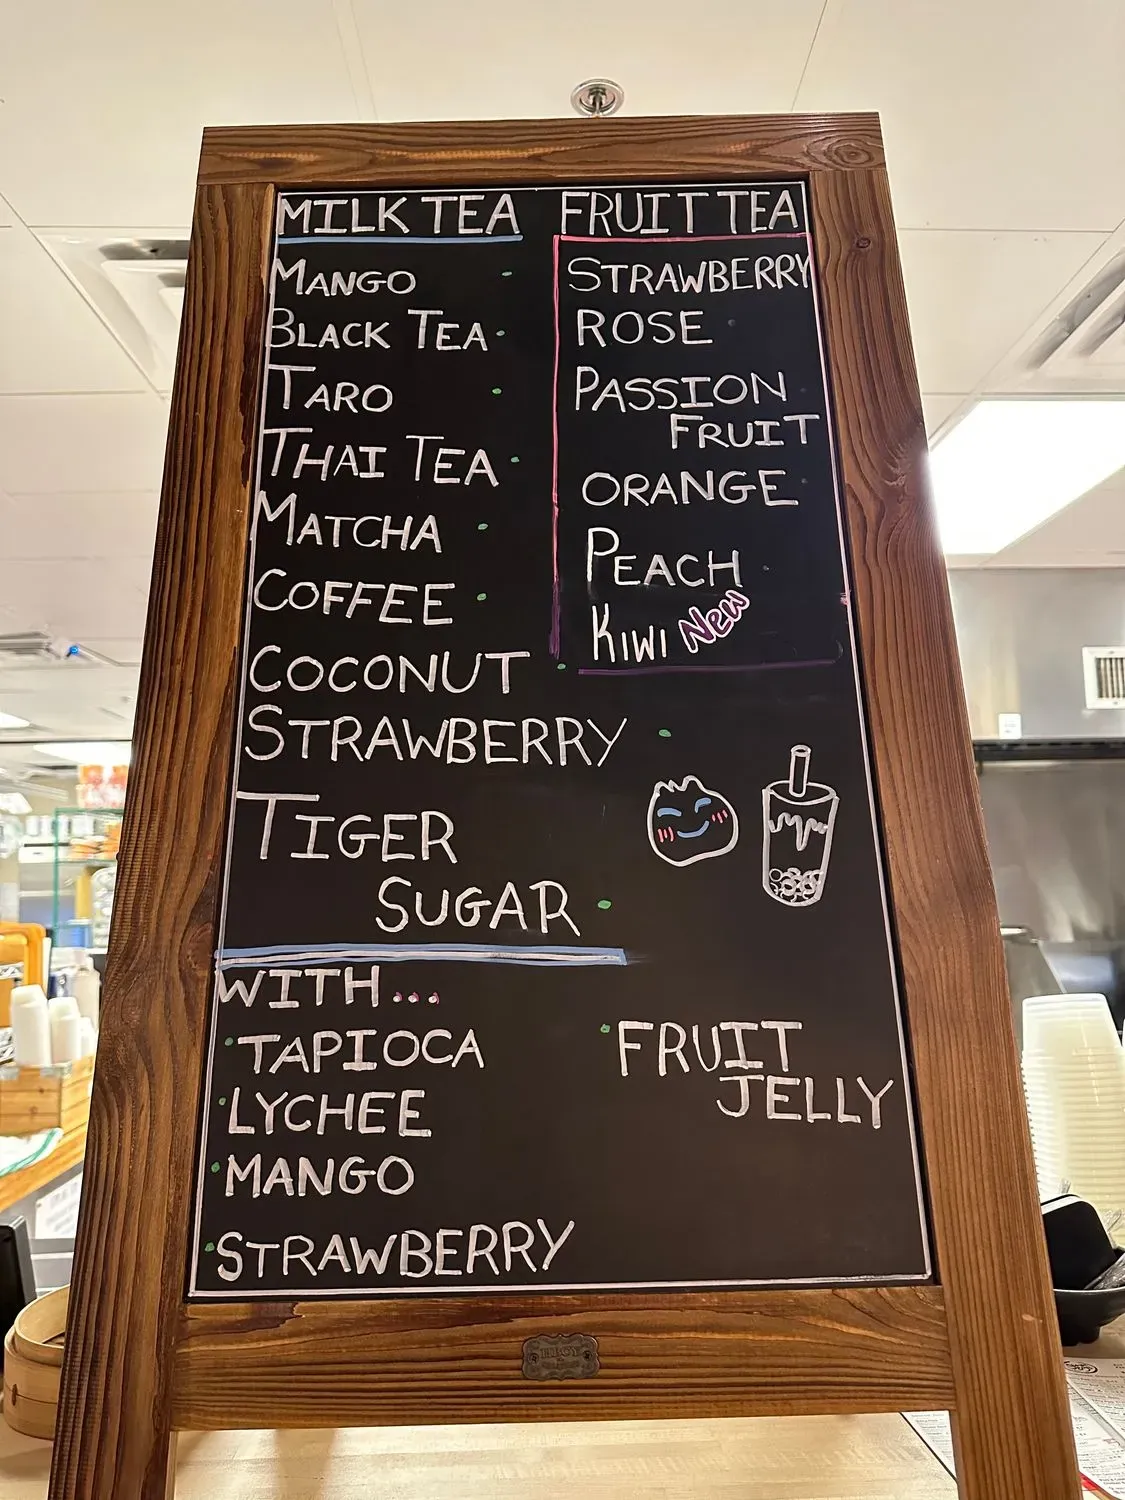 MILK TEA
MANGO
BLACK TEA
TARO
THAI TEA
MATCHA
COFFEE
COCONUT
STRAWBERRY
TIGER
SUGAR
FRUIT TEA
STRAWBERRY
ROSE
PASSION
FRUIT
ORANGE
PEACH
KIWI New
WITH...
TAPIOCA
LYCHEE
MANGO
STRAWBERRY
FRUIT
JELLY